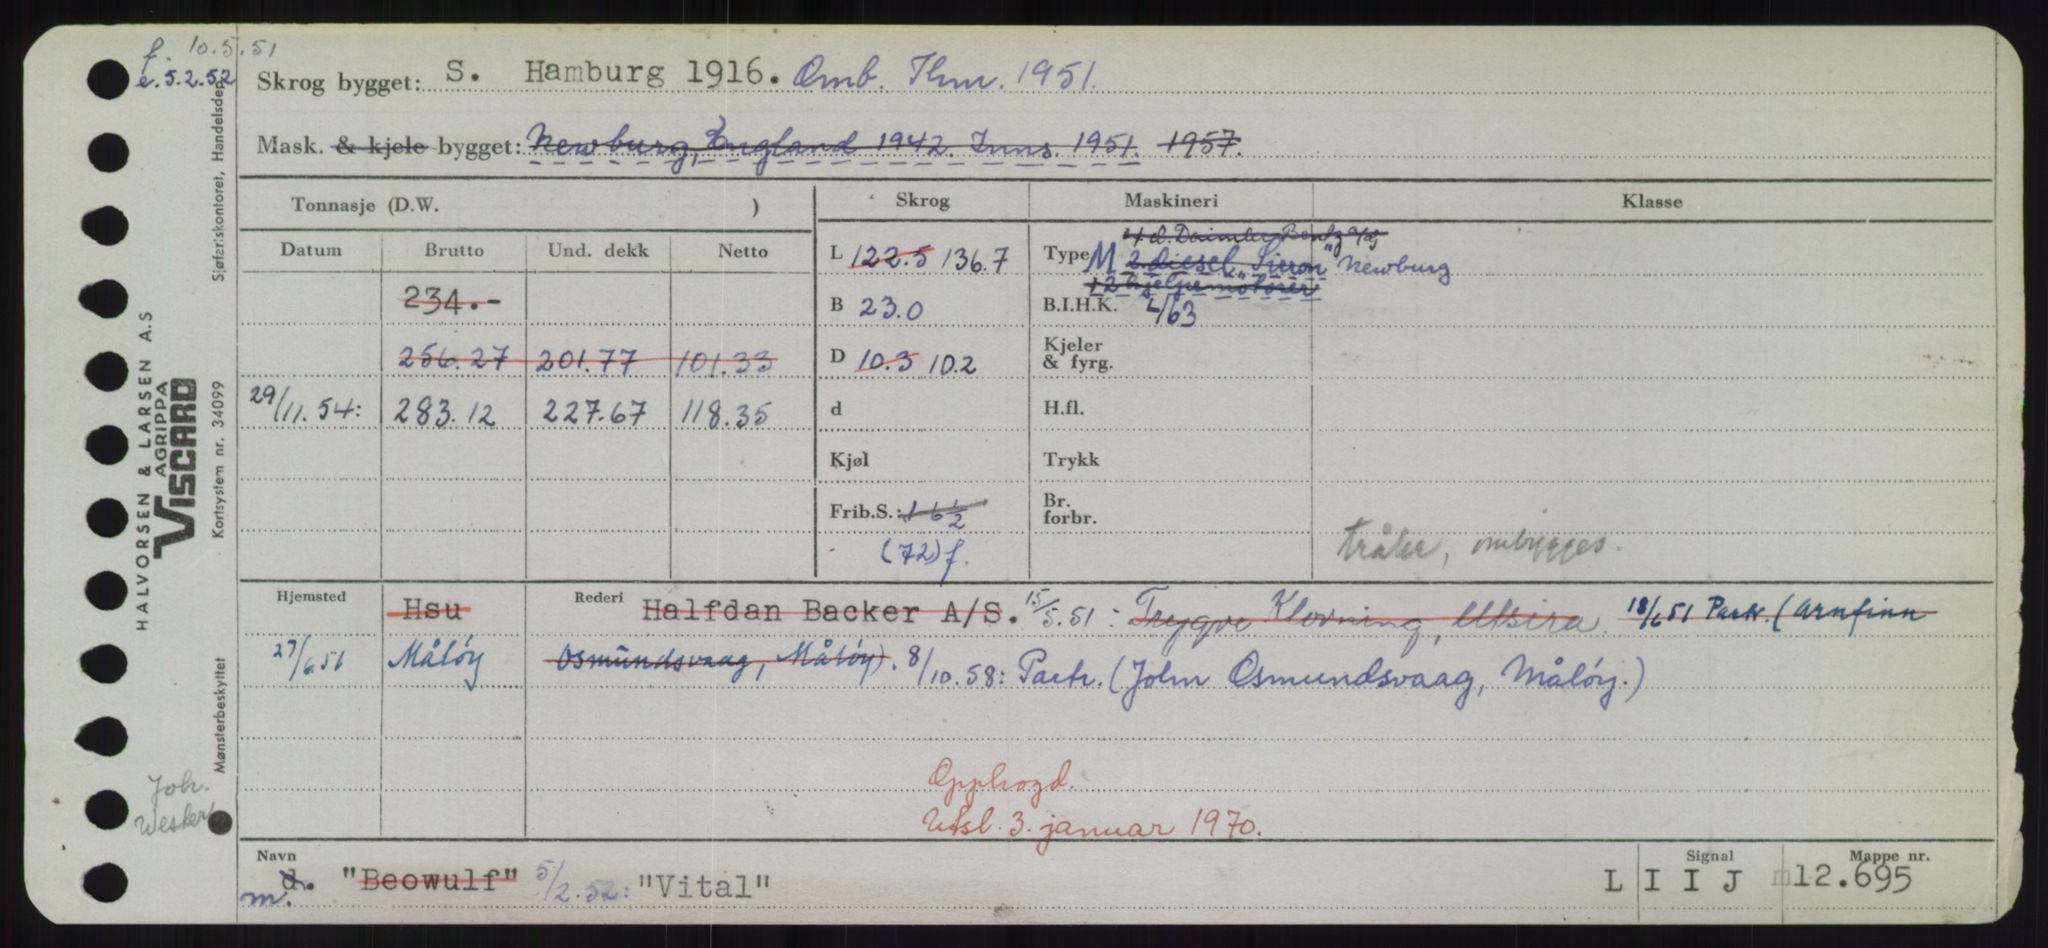 f. 10.5.51
e. 5.2.52
Skrog bygget: S. Hamburg 1916. Omb. Thm. 1951.
Mask. & kjele bygget: Newburg, England 1942. Inns. 1951. 1957.
Tonnasje (D.W. )
Skrog Maskineri Klasse
Datum Brutto Und. dekk Netto
L 122.5 136.7
Type M 2 diesel "Sirron" Newburg
4 d. Daimler Bentz
+ 2 hjelpemotorer
234.-
B 23.0
B.I.H.K. 4/63
256.27 201.77 101.33
D 10.3 10.2
Kjeler & fyrg.
29/11.54: 283.12 227.67 118.35
d
H.fl.
Kjøl
Trykk
Frib.S.: 1 6 ½
(72) f.
Br. forbr.
tråler, ombygges.
Hjemsted Hsu Rederi Halfdan Backer A/S. 15/5.51: Trygve Klovning, Utsira. 18/6 51 Partr. (Arnfinn
27/6.51 Måløy Osmundsvaag, Måløy). 8/10.58: Partr. (John Osmundsvaag, Måløy.)
Opphogd.
Utsl. 3. januar 1970.
Navn
d. "Beowulf" 5/2.52: "Vital"
m.
Signal L I I J
Mappe nr. m12.695
Sjøfartskontoret, Handelsdep.
Kortsystem nr. 34099
Mønsterbeskyttet
HALVORSEN & LARSEN A.S
AGRIPPA
VISCARD
Joh.